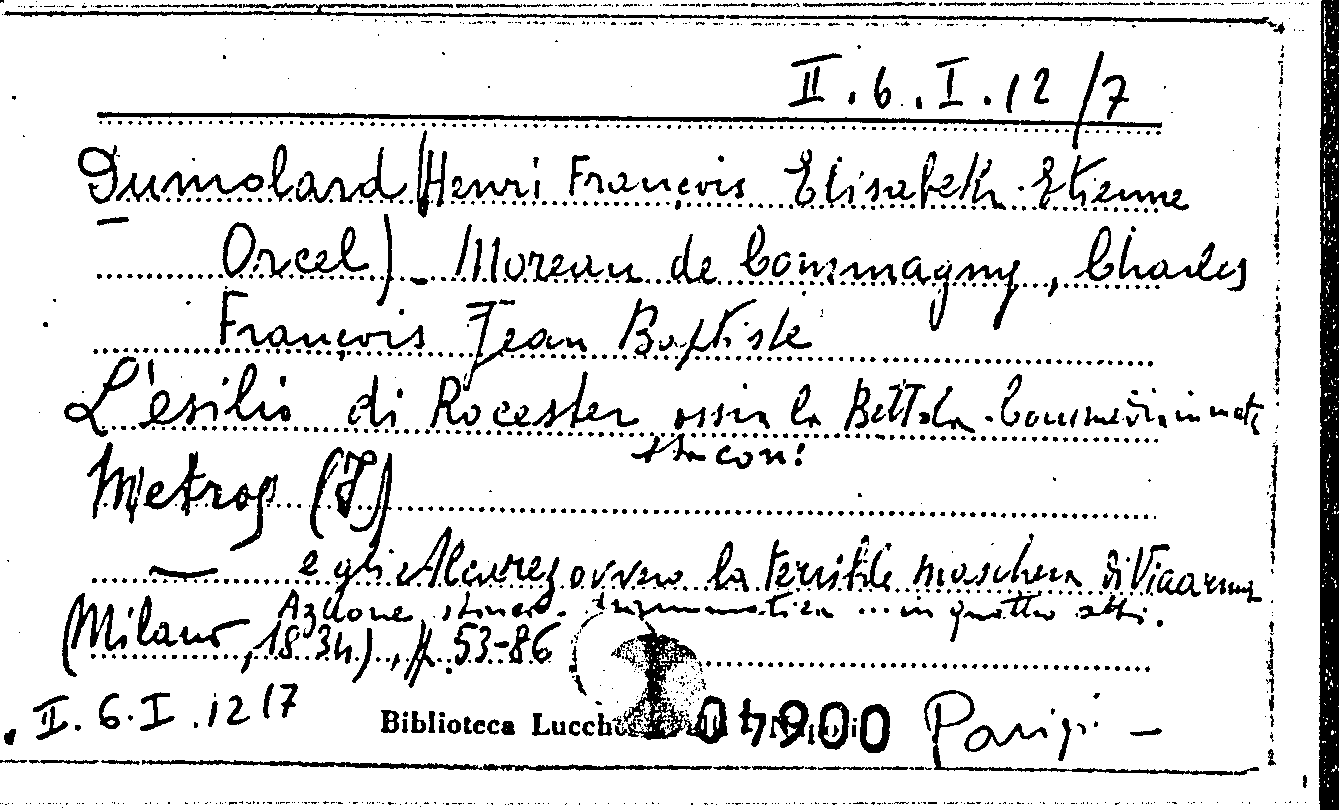 II.6.I.12/7
Dumolard (Henri François Elisabeth Etienne
Orcel) - Moreau de Commagny, Charles
François Jean Baptiste
L'esilio di Rocester ossia la Bettola. Commedia in
Sta con:
Metrop (J)
— e gli Alvarez ovvero la terribile maschera di
Azione storico-drammatica ... in quattro atti.
(Milano, 1834), p. 53-86
II.6.I.12/7
Biblioteca Lucch 004900 Parigi -